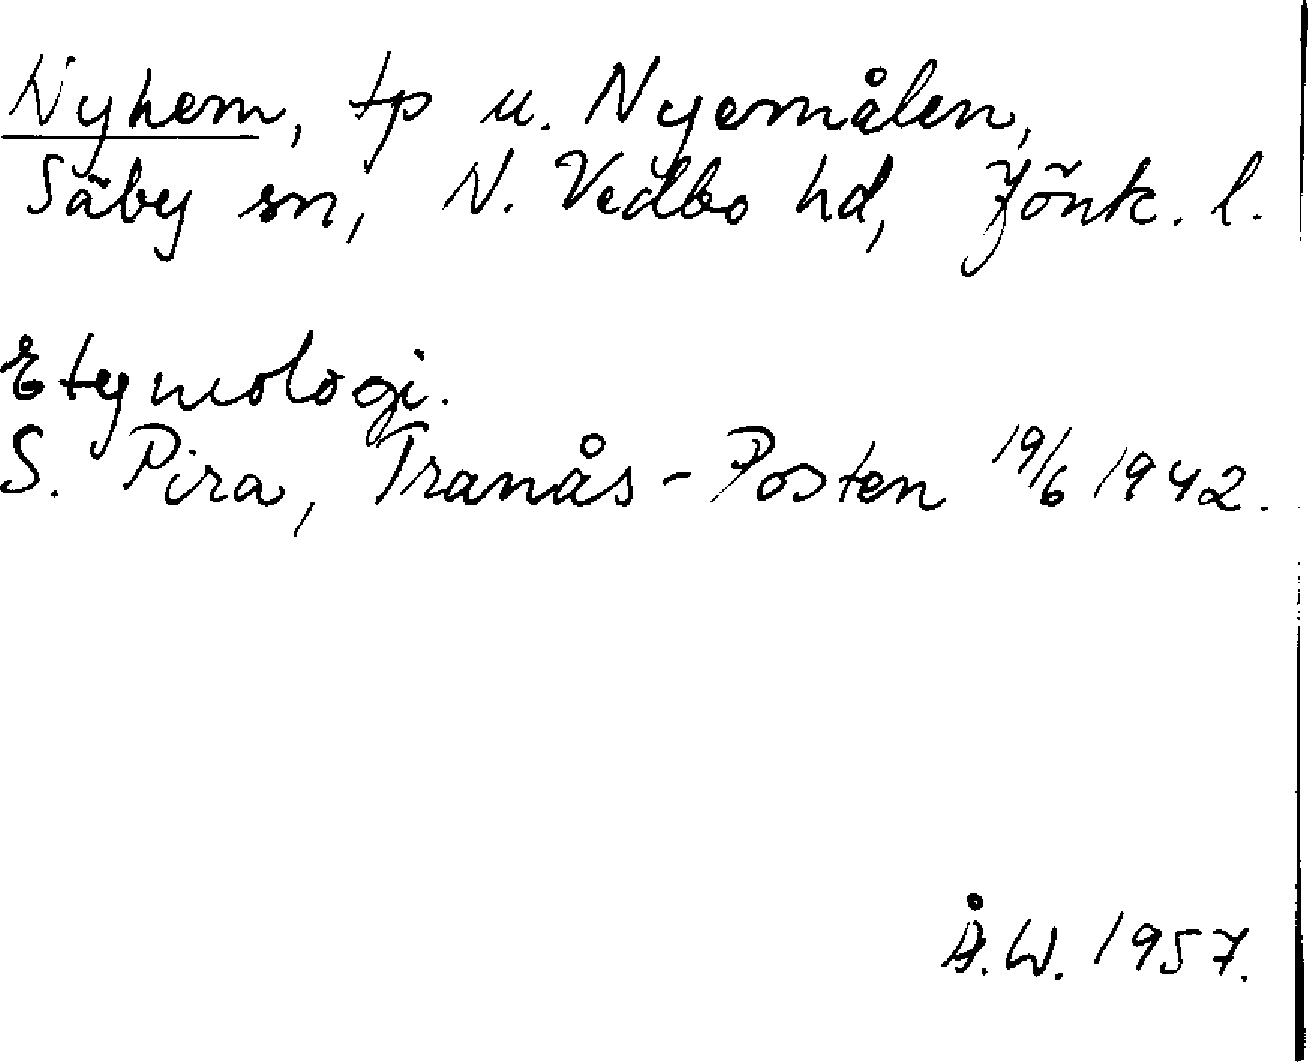 Nyhem, tp u. Nyemålen,
Säby sn, N. Vedbo hd, Jönk. l.
Etymologi.
S. Pira, Tranås-Posten 19/6 1942.
Å.W. 1957.